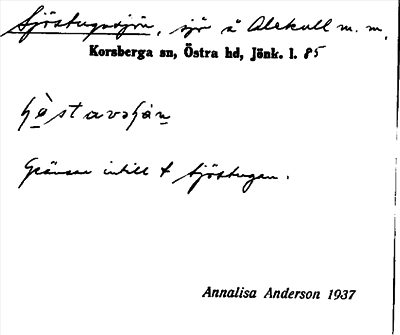 Sjöstugusjön, sjö å Alekull m. m.
Korsberga sn, Östra hd, Jönk. l. 85
Gränsar intill t Sjöstugan.
Annalisa Anderson 1937